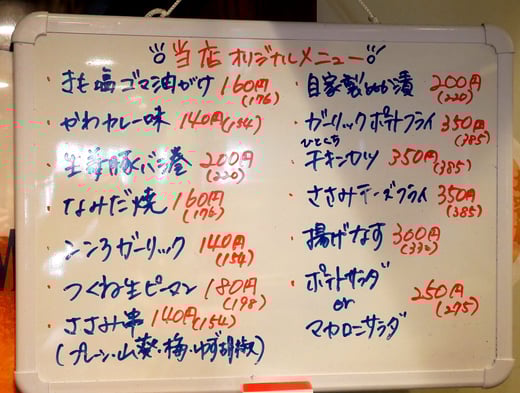 当店オリジナルメニュー
・きも塩ゴマ油がけ 160円(176)
・かわカレー味 140円(154)
・生姜豚バラ巻 200円(220)
・なみだ焼 160円(176)
・シンゾウガーリック 140円(154)
・つくね生ピーマン 180円(198)
・ささみ串 140円(154)
(プレーン・山葵・梅・ゆず胡椒)
・自家製 漬 200円(220)
・ガーリックポテトフライ 350円(385)
・ひとくちチキンカツ 350円(385)
・ささみチーズフライ 350円(385)
・揚げなす 300円(330)
・ポテトサラダ
or 250円(275)
マカロニサラダ